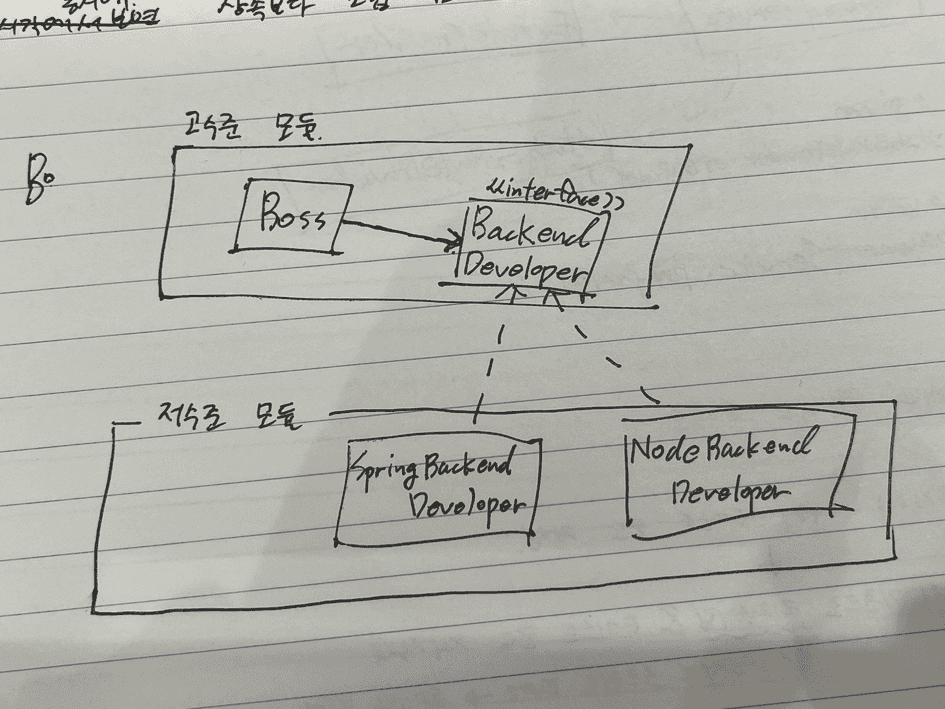 시각에서 보면 상속보다
고수준 모듈.
Bo
Boss
<<interface>>
Backend
Developer
저수준 모듈
Spring Backend
Developer
Node Backend
Developer